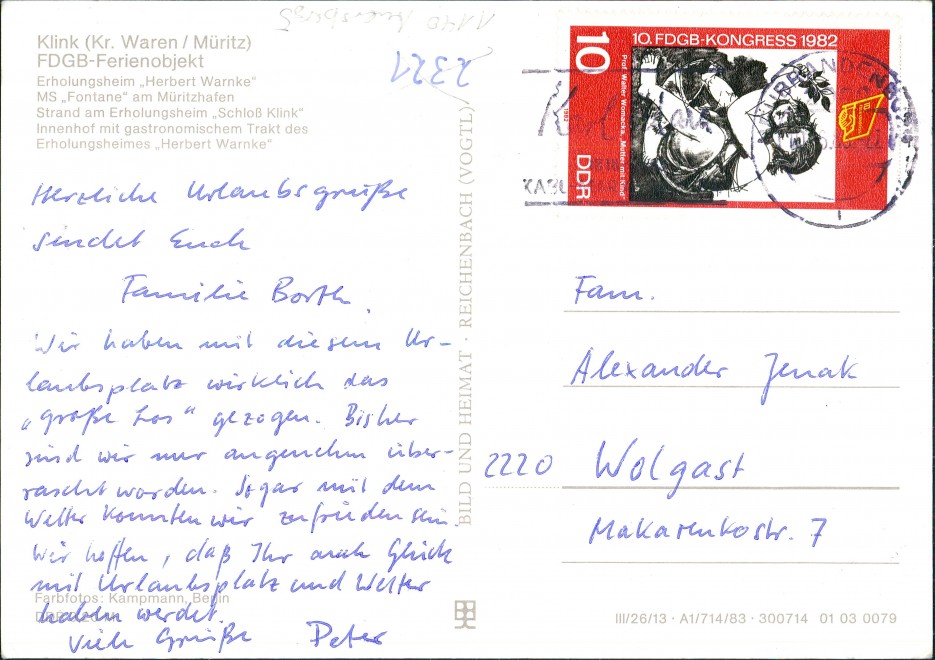 Klink (Kr. Waren / Müritz)
FDGB-Ferienobjekt
Erholungsheim „Herbert Warnke“
MS „Fontane“ am Müritzhafen
Strand am Erholungsheim „Schloß Klink“
Innenhof mit gastronomischem Trakt des
Erholungsheimes „Herbert Warnke“
2321
Herzliche Urlaubsgrüße
sendet Euch
Familie Borth.
Wir haben mit diesem Ur-
laubsplatz wirklich das
„große Los“ gezogen. Bisher
sind wir nur angenehm über-
rascht worden. Sogar mit dem
Wetter konnten wir zufrieden sein.
Wir hoffen, daß Ihr auch Glück
mit Urlaubsplatz und Wetter
haben werdet.
Viele Grüße Peter
Farbfotos: Kampmann, Berlin
BILD UND HEIMAT · REICHENBACH (VOGTL)
10
10. FDGB-KONGRESS 1982
Prof. Walter Womacka, „Mutter mit Kind“
1982
DDR
Fam.
Alexander Jenak
2220 Wolgast
Makarenkostr. 7
III/26/13 · A1/714/83 · 300714 01 03 0079